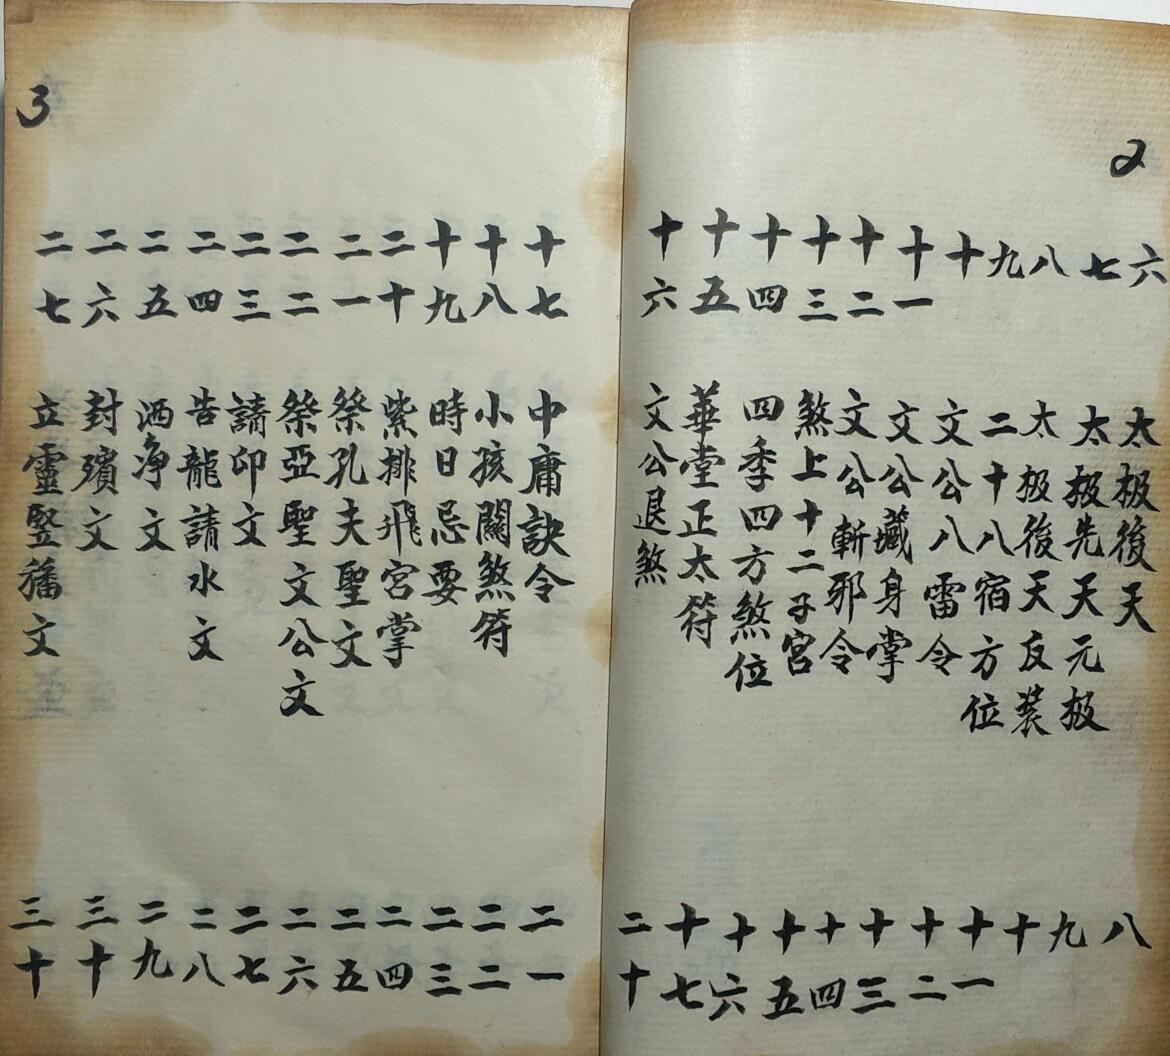 2
六 太极後天 八
七 太极先天元极 九
八 太极後天反装 十
九 二十八宿方位 十一
十 文公八雷令 十二
十一 文公藏身掌 十三
十二 文公斬邪令 十四
十三 煞上十二子宮 十五
十四 四季四方煞位 十六
十五 華堂正太符 十七
十六 文公退煞 二十
3
十七 中庸訣令 二一
十八 小孩關煞符 二二
十九 時日忌要 二三
二十 紫排飛宮掌 二四
二一 祭孔夫聖文 二五
二二 祭亞聖文公文 二六
二三 請印文 二七
二四 告龍請水文 二八
二五 洒净文 二九
二六 封殯文 三十
二七 立靈竪旛文 三十